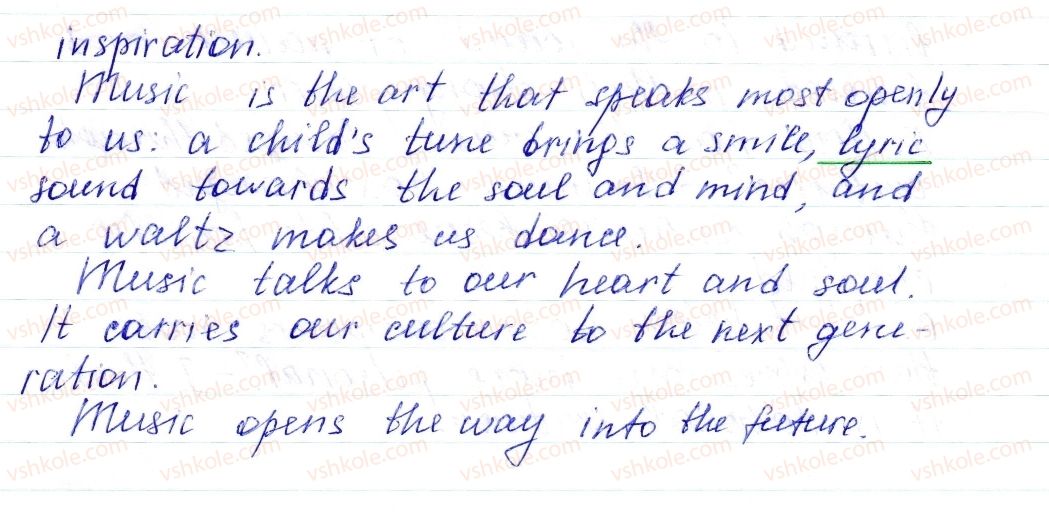 inspiration.
Music is the art that speaks most openly
to us: a child's tune brings a smile, lyric
sound towards the soul and mind, and
a waltz makes us dance.
Music talks to our heart and soul.
It carries our culture to the next gene-
ration.
Music opens the way into the future.